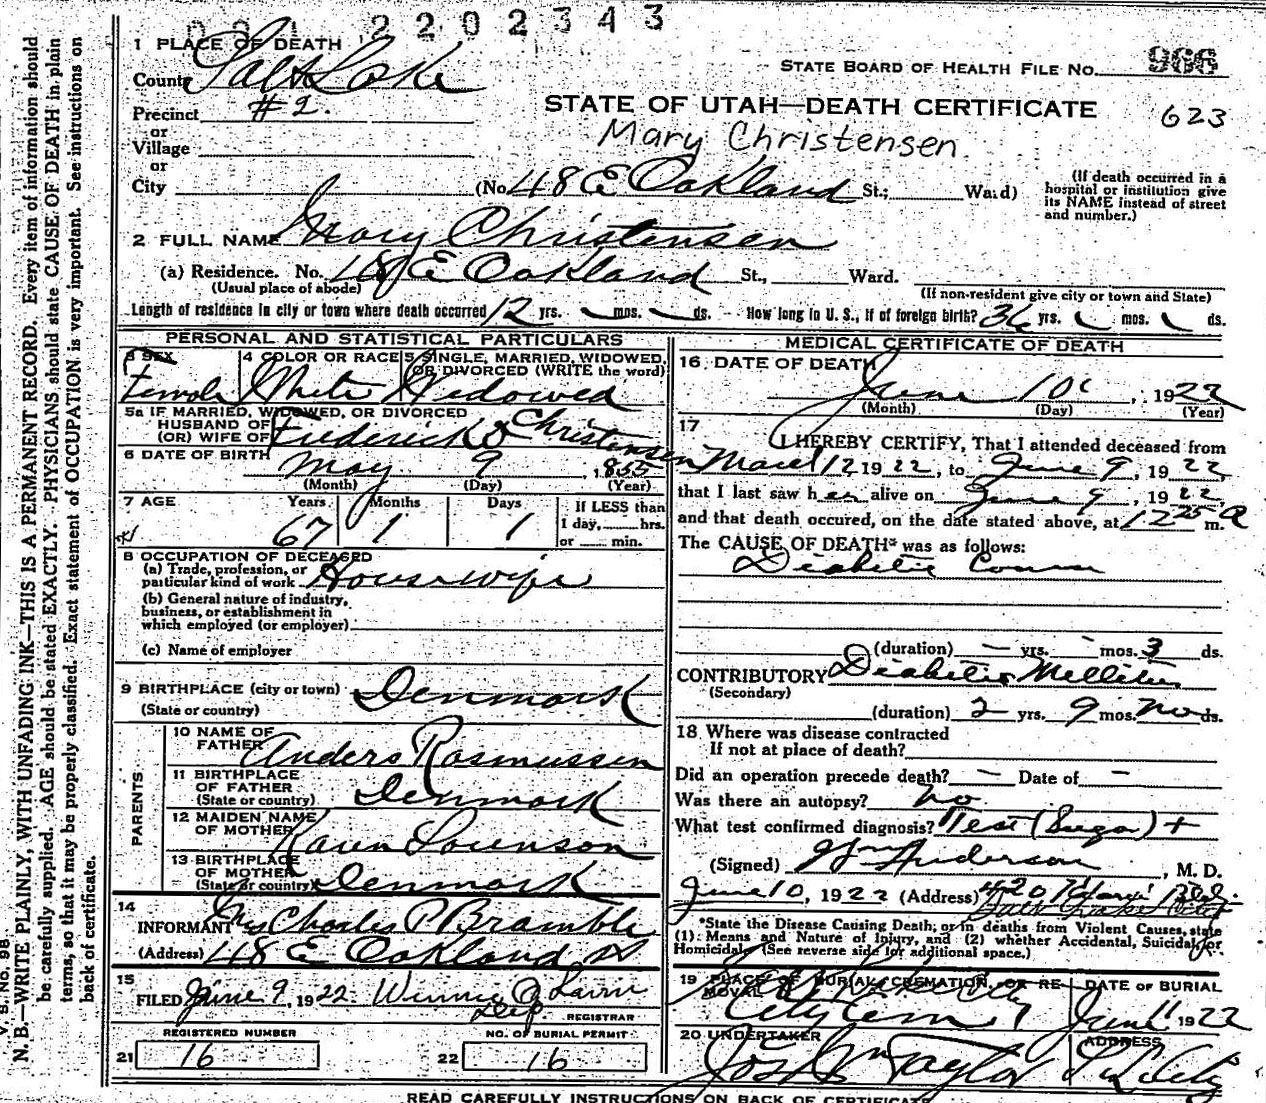 2202343
1 PLACE OF DEATH
County Salt Lake
STATE BOARD OF HEALTH FILE NO. 966
Precinct #2.
STATE OF UTAH—DEATH CERTIFICATE
623
or
Village
Mary Christensen
or
City (No. 48 E Oakland St.; Ward)
(If death occurred in a hospital or institution give its NAME instead of street and number.)
2 FULL NAME Mary Christensen
(a) Residence. No. 48 E Oakland St., Ward.
(Usual place of abode)
(If non-resident give city or town and State)
Length of residence in city or town where death occurred 12 yrs. mos. ds. How long in U. S., if of foreign birth? 36 yrs. mos. ds.
PERSONAL AND STATISTICAL PARTICULARS
3 SEX
Female
4 COLOR OR RACE
White
5 SINGLE, MARRIED, WIDOWED, OR DIVORCED (WRITE the word)
Widowed
5a IF MARRIED, WIDOWED, OR DIVORCED
HUSBAND OF
(OR) WIFE OF Frederick Christensen
6 DATE OF BIRTH
May 9, 1855
(Month) (Day) (Year)
7 AGE
Years Months Days
67 1 1
If LESS than
1 day, hrs.
or min.
8 OCCUPATION OF DECEASED
(a) Trade, profession, or
particular kind of work Housewife
(b) General nature of industry,
business, or establishment in
which employed (or employer)
(c) Name of employer
9 BIRTHPLACE (city or town)
(State or country) Denmark
PARENTS
10 NAME OF
FATHER Anders Rasmussen
11 BIRTHPLACE
OF FATHER
(State or country) Denmark
12 MAIDEN NAME
OF MOTHER Karen Sorenson
13 BIRTHPLACE
OF MOTHER
(State or country) Denmark
14
INFORMANT Mrs Charles P Bramble
(Address) 48 E Oakland
15
FILED June 9, 1922 Winnie
Dep REGISTRAR
REGISTERED NUMBER
21 16
NO. OF BURIAL PERMIT
22 16
MEDICAL CERTIFICATE OF DEATH
16 DATE OF DEATH
June 10, 1922
(Month) (Day) (Year)
17
I HEREBY CERTIFY, That I attended deceased from
March 12 1922, to June 9, 1922
that I last saw her alive on June 9, 1922
and that death occured, on the date stated above, at 12 25 m. A
The CAUSE OF DEATH* was as follows:
Diabetic Coma
(duration) — yrs. - mos. 3 ds.
CONTRIBUTORY Diabetes Mellitus
(Secondary)
(duration) 2 yrs. 9 mos. no ds.
18 Where was disease contracted
If not at place of death?
Did an operation precede death? — Date of —
Was there an autopsy? no
What test confirmed diagnosis? Test (Sugar) +
(Signed) Anderson, M. D.
June 10, 1922 (Address) Salt Lake City
*State the Disease Causing Death; or in deaths from Violent Causes, state
(1): Means and Nature of Injury, and (2) whether Accidental, Suicidal, or
Homicidal. (See reverse side for additional space.)
19 PLACE OF BURIAL, CREMATION, OR REMOVAL
City Cem
DATE OF BURIAL
June 11 1922
20 UNDERTAKER
Jos Wm Taylor
ADDRESS
S L City
READ CAREFULLY INSTRUCTIONS ON BACK OF CERTIFICATE
V. S. No. 98
N. B.—WRITE PLAINLY, WITH UNFADING INK—THIS IS A PERMANENT RECORD. Every item of information should
be carefully supplied. AGE should be stated EXACTLY. PHYSICIANS should state CAUSE OF DEATH in plain
terms, so that it may be properly classified. Exact statement of OCCUPATION is very important. See instructions on
back of certificate.